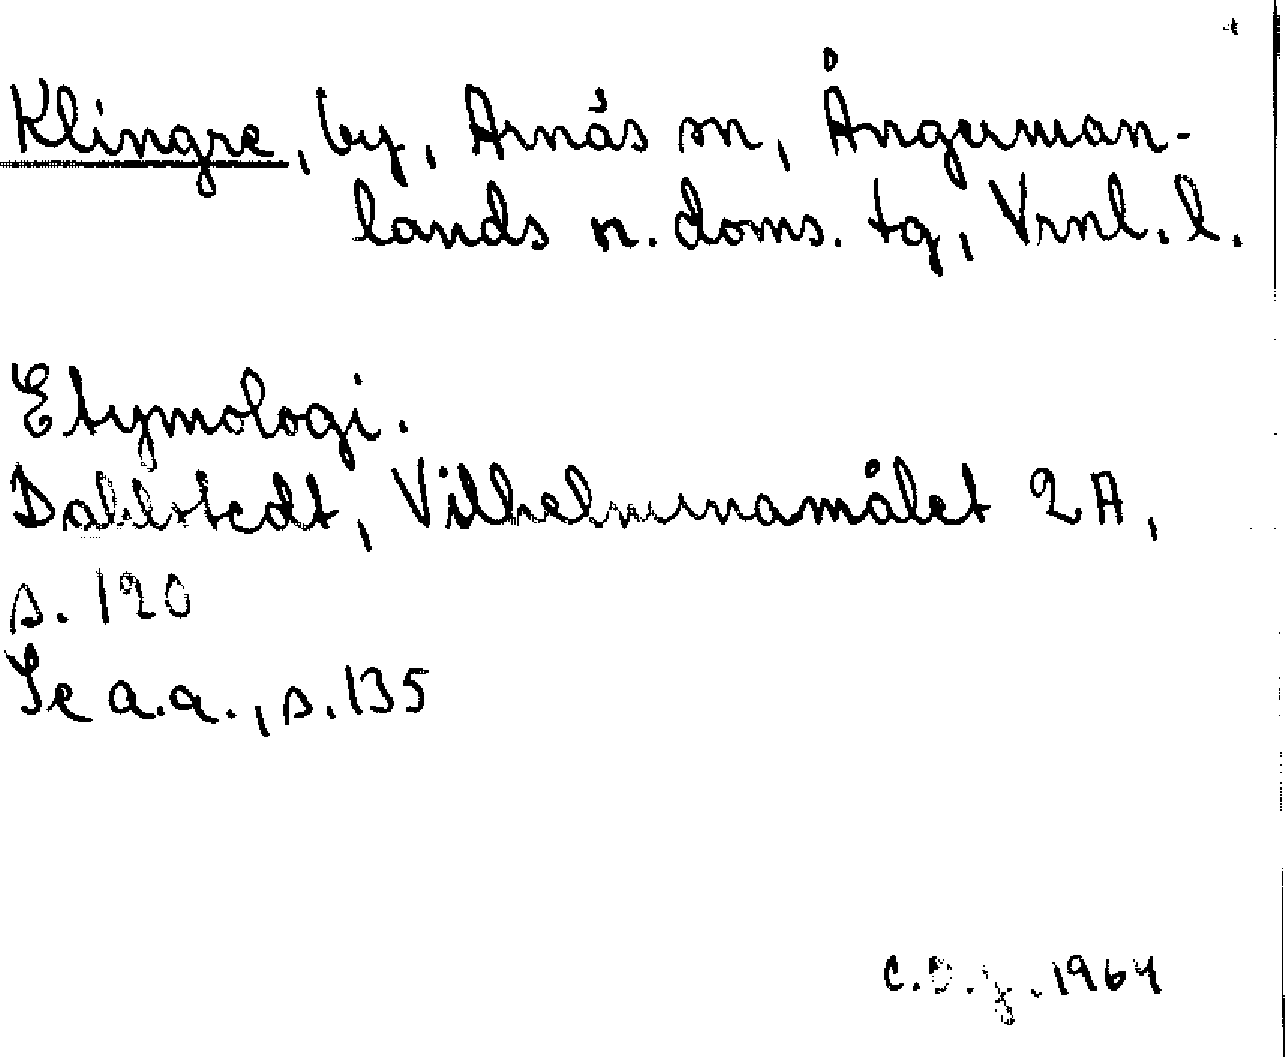 Klingre, by, Arnäs sn, Ångerman-
lands n. doms. tg, Vrnl. l.
Etymologi.
Dahlstedt, Vilhelminamålet 2A,
s. 120
Se a.a., s. 135
1964